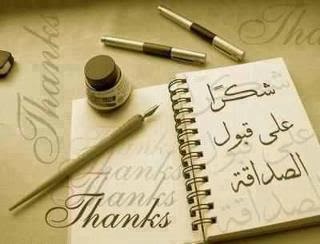 شكرًا
على قبول
الصداقة
Thanks
Thanks
Thanks
Thanks
Thanks